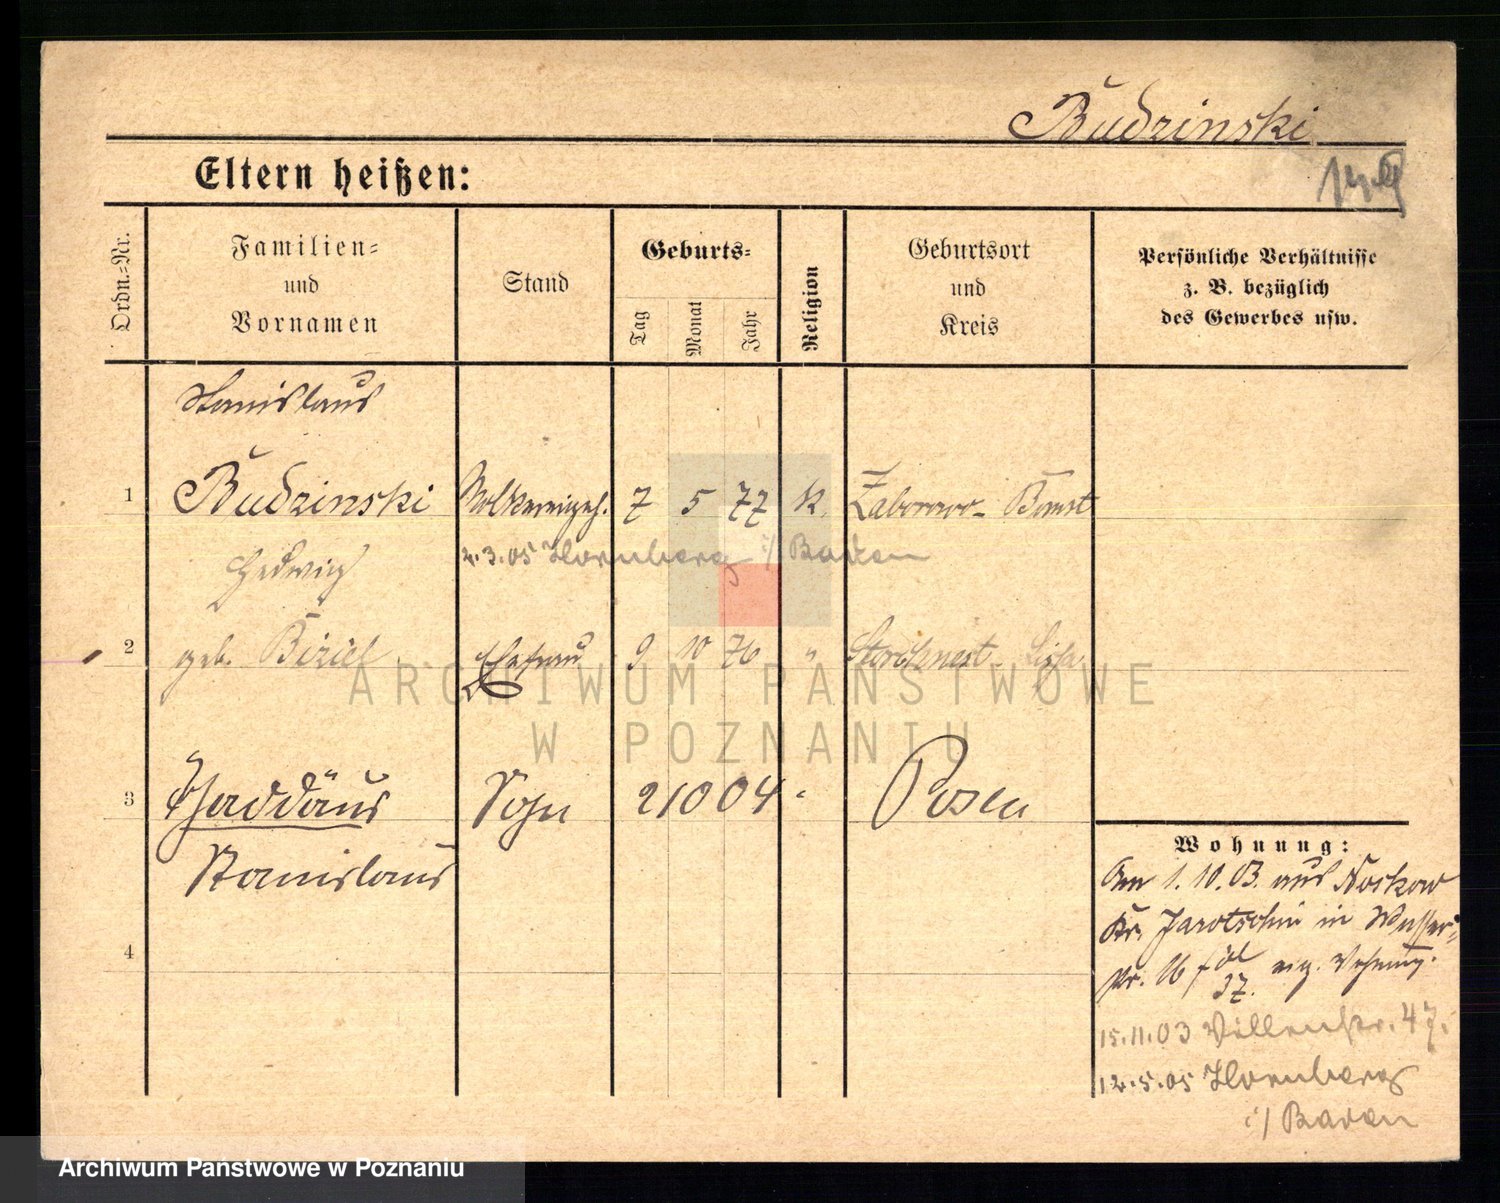 Budzinski
Eltern heißen:
Ordn.=Nr.
Familien=
und
Vornamen
Stand
Geburts=
Tag
Monat
Jahr
Religion
Geburtsort
und
Kreis
Persönliche Verhältnisse
z. B. bezüglich
des Gewerbes usw.
Stanislaus
1 Budzinski Molkereigeh. 7 5 77 k. Zaborowo - Bomst
2.3.05 Hornberg i/ Baden
Hedwig
2 geb. Ehefrau 9 10 76 " Storchnest - Lissa
3 Thaddäus Sohn 2 10 04 " Posen
Stanislaus
4
Wohnung:
Am 1.10.03. aus Noskow
Kr. Jarotschin in
eig. Wohnung.
15.11.03 Villenstr. 47.
12.5.05 Hornberg
i/ Baden
ARCHIWUM PAŃSTWOWE
W POZNANIU
Archiwum Państwowe w Poznaniu